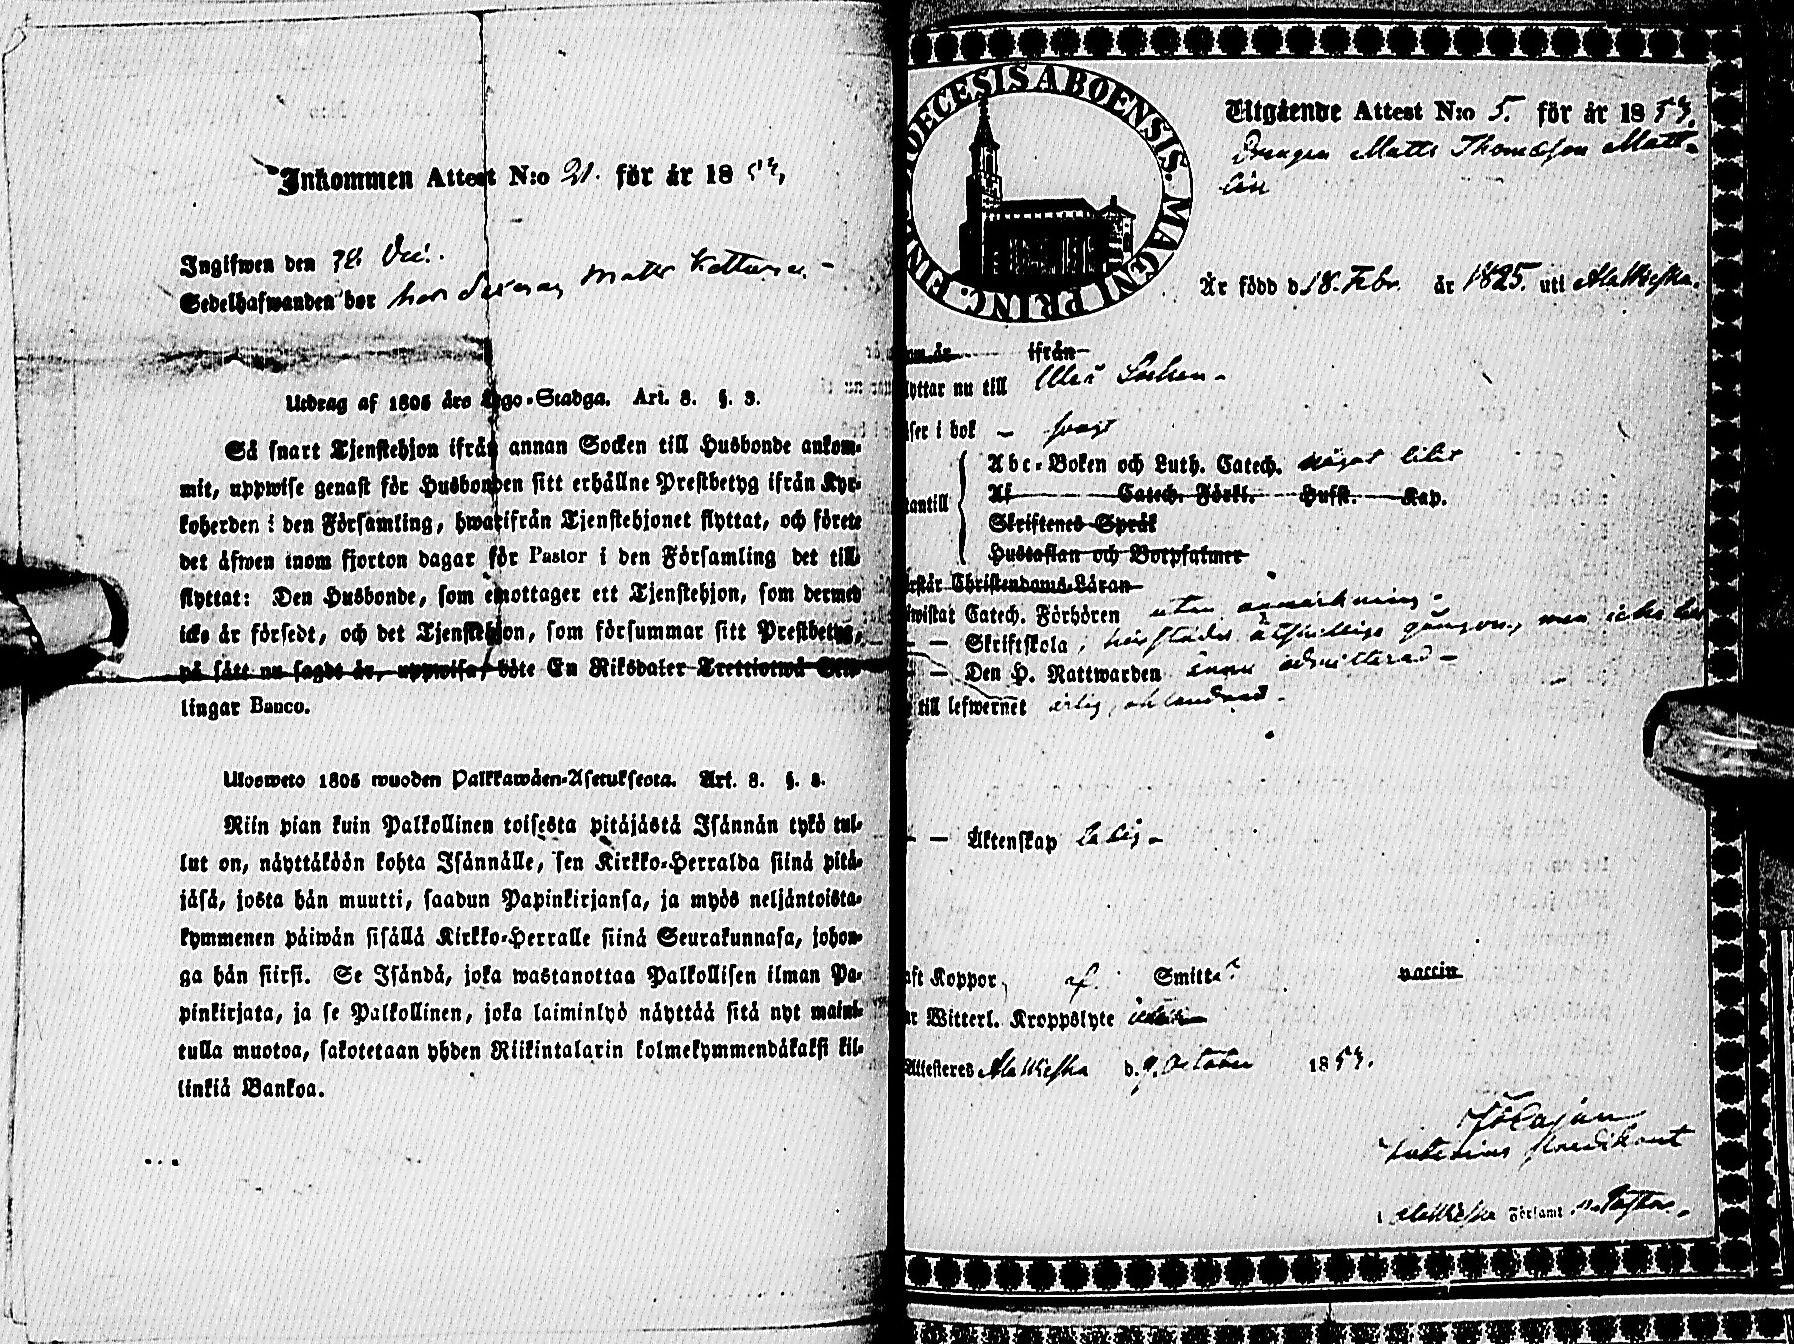 Inkommen Attest N:o 21. för år 18
Ingifwen den
Sedelhafwanden bor hos Matts
Utdrag af 1805 års Lego-Stadga. Art. 8. §. 3.
Så snart Tjenstehjon ifrån annan Socken till Husbonde ankom-
mit, uppwise genast för Husbonden sitt erhållne Prestbetyg ifrån Kyr-
koherden i den Församling, hwarifrån Tjenstehjonet flyttat, och förete
det äfwen inom fjorton dagar för Pastor i den Församling det till-
flyttat: Den Husbonde, som emottager ett Tjenstehjon, som dermed
icke är försedt, och det Tjenstehjon, som försummar sitt Prestbetyg,
på sätt nu sagdt är, uppwisa, böte En Riksdaler Trettiotwå Skil-
lingar Banco.
Ulosweto 1805 wuoden Palkkawäen-Asetuksesta. Art. 8. §. 3.
Niin pian kuin Palkollinen toisesta pitäjästä Isännän tykö tul-
lut on, näyttäköön kohta Isännälle, sen Kirkko-Herralda siinä pitä-
jäsä, josta hän muutti, saadun Papinkirjansa, ja myös neljäntoista-
kymmenen päiwän sisällä Kirkko-Herralle siinä Seurakunnasa, johon-
ga hän siirsi. Se Isändä, joka wastanottaa Palkollisen ilman Pa-
pinkirjata, ja se Palkollinen, joka laiminlyö näyttää sitä nyt maini-
tulla muotoa, sakotetaan yhden Riikintalarin kolmekymmendäkaksi kil-
linkiä Bankoa.
DIOECESIS ABOENSIS. MAGNI PRINC. FINL.
Utgående Attest N:o 5. för år 1854.
Drengen Matts Thomasson Matt-
lin
Är född d. 18. Febr. år 1825. uti Alawieska.
om år ifrån
lyttar nu till Uleå Socken.
äser i bok – svagt
tantill
Abc-Boken och Luth. Catech. något litet
Af Catech. Förkl. Hufst. Kap.
Skriftenes Språk
Hustaflan och Botpsalmer
rstår Christendoms-Läran
iwistat Catech. Förhören utan anmärkning.
— Skriftskola, härstädes åtskilliga gånger, men icke
— Den H. Nattwarden ännu admitterad
till lefwernet ärlig
— Äktenskap ledig.
aft Koppor, af Smitta vaccin
ar Witterl. Kroppslyte
Attesteres Alawieska d. 9. October 1854.
Predikant
i Alawieska Församl.